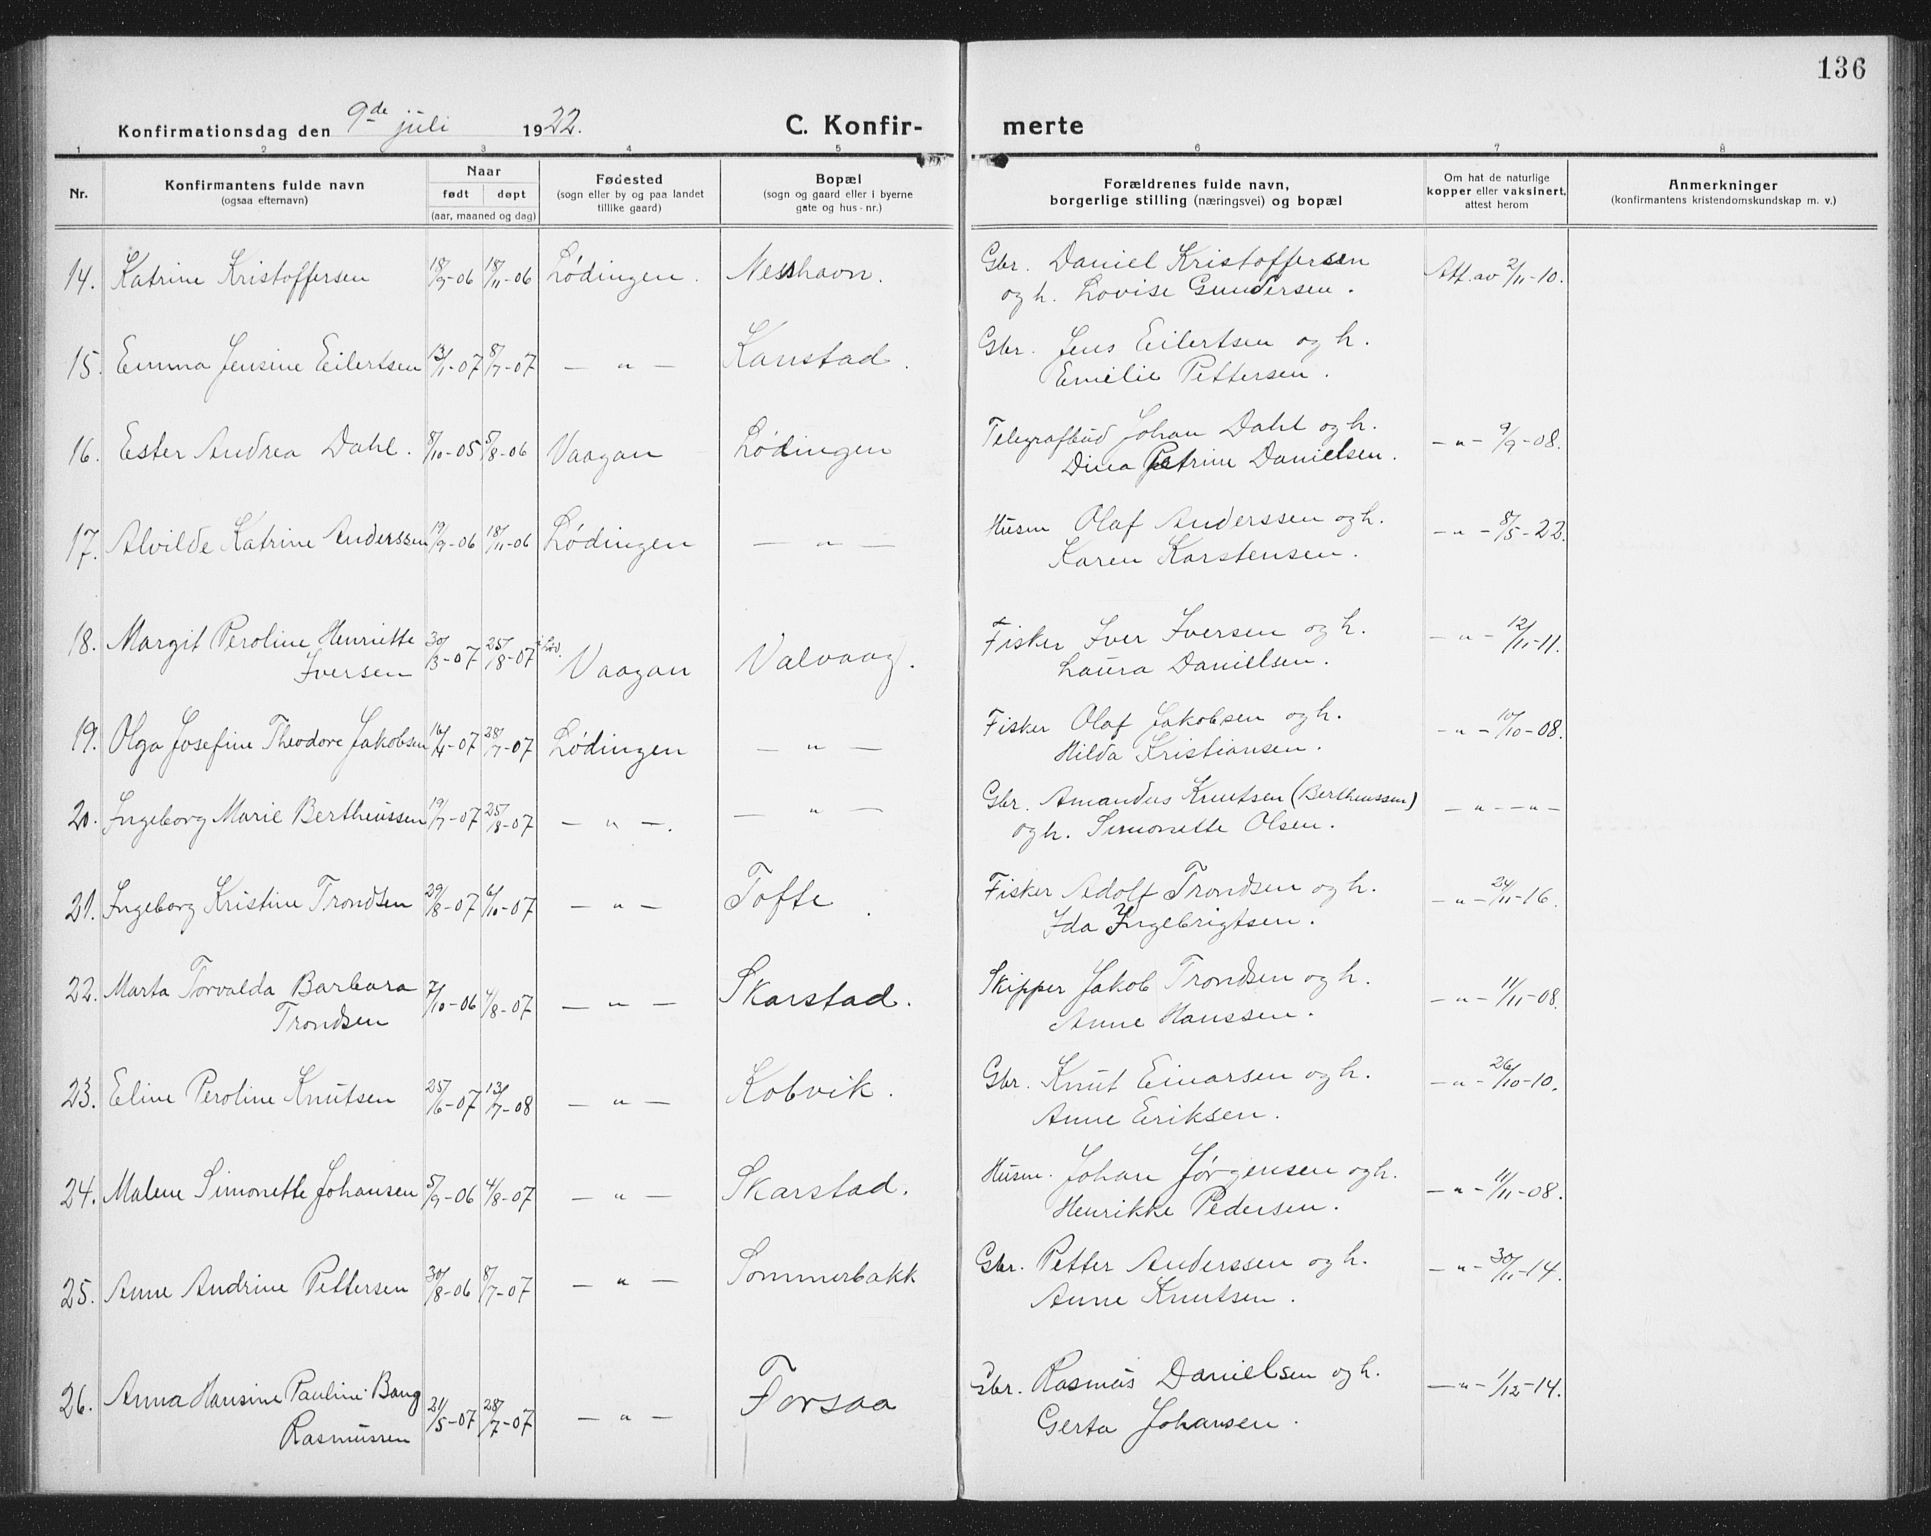 136
Konfirmationsdag den 9de juli 1922. C. Konfir- merte
1 2 3 4 5 6 7 8
Nr. Konfirmantens fulde navn (ogsaa efternavn) Naar født døpt (aar, maaned og dag) Fødested (sogn eller by og paa landet tillike gaard) Bopæl (sogn og gaard eller i byerne gate og hus-nr.) Forældrenes fulde navn, borgerlige stilling (næringsvei) og bopæl Om hat de naturlige kopper eller vaksinert, attest herom Anmerkninger (konfirmantens kristendomskundskap m. v.)
14. Katrine Kristoffersen 18/9-06 18/11-06 Lødingen. Neshavn. Gbr. Daniel Kristoffersen Att. av 2/11-10.
og h. Lovise Gundersen.
15. Emma Jensine Eilertsen 13/1-07 8/7-07 — " — Kanstad. Gbr. Jens Eilertsen og h.
Emelie Pettersen.
16. Ester Andrea Dahl. 8/10-05 5/8-06 Vaagan Lødingen Telegrafbud Johan Dahl og h. — " — 9/9-08.
Dina Petrine Danielsen.
17. Alvilde Katrine Anderssen 19/9-06 18/11-06 Lødingen — " — Husm Olaf Anderssen og h. — " — 8/5-22.
Karen Karstensen.
18. Margit Peroline Henriette 30/3-07 25/8-07 Vaagan Valvaag. Fisker Iver Iversen og h. — " — 12/11-11.
Iversen Laura Danielsen.
19. Olga Josefine Theodore Jakobsen 16/4-07 28/7-07 Lødingen — " — Fisker Olaf Jakobsen og h. — " — 10/10-08.
Hilda Kristiansen.
20. Ingeborg Marie Bertheussen 19/7-07 25/8-07 — " —. — " — Gbr. Amandus Knutsen (Bertheussen) — " — — " —
og h. Simonette Olsen.
21. Ingeborg Kristine Trondsen 29/8-07 6/10-07 — " — Tofte. Fisker Adolf Trondsen og h. — " — 24/11-16.
Ida Ingebrigtsen.
22. Marta Torvalda Barbara 7/10-06 4/8-07 — " — Skarstad. Skipper Jakob Trondsen og h. — " — 11/11-08.
Trondsen Anne Hanssen.
23. Eline Peroline Knutsen 25/6-07 13/7-08 — " — Kobvik. Gbr. Knut Einarsen og h. — " — 26/10-10.
Anne Eriksen.
24. Malene Simonette Johansen 5/9-06 4/8-07 — " — Skarstad. Husm. Johan Jørgensen og h. — " — 11/11-08.
Henrikke Pedersen.
25. Anne Andrine Pettersen 30/8-06 8/7-07 — " — Sommerbakk Gbr. Petter Anderssen og h. — " — 30/11-14.
Anne Knutsen.
26. Anna Hansine Pauline Bang 21/5-07 28/7-07 — " — Forsaa Gbr. Rasmus Danielsen og h. — " — 1/12-14.
Rasmussen Gerta Johansen.